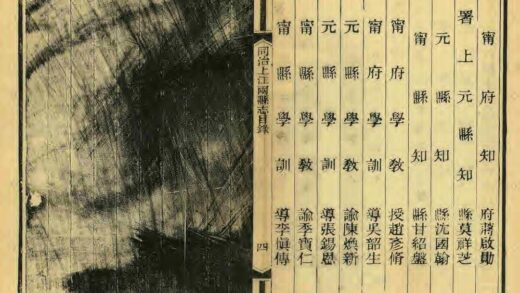 甯府知府蔣啟勛
署上元縣知縣莫祥芝
元縣知縣沈國翰
甯縣知縣甘紹盤
甯府學教授趙彥脩
甯府學訓導吳韶生
元縣學教諭陳煥新
元縣學訓導張錫恩
甯縣學教諭季寶仁
甯縣學訓導李慎傳
同治上江兩縣志目錄
四